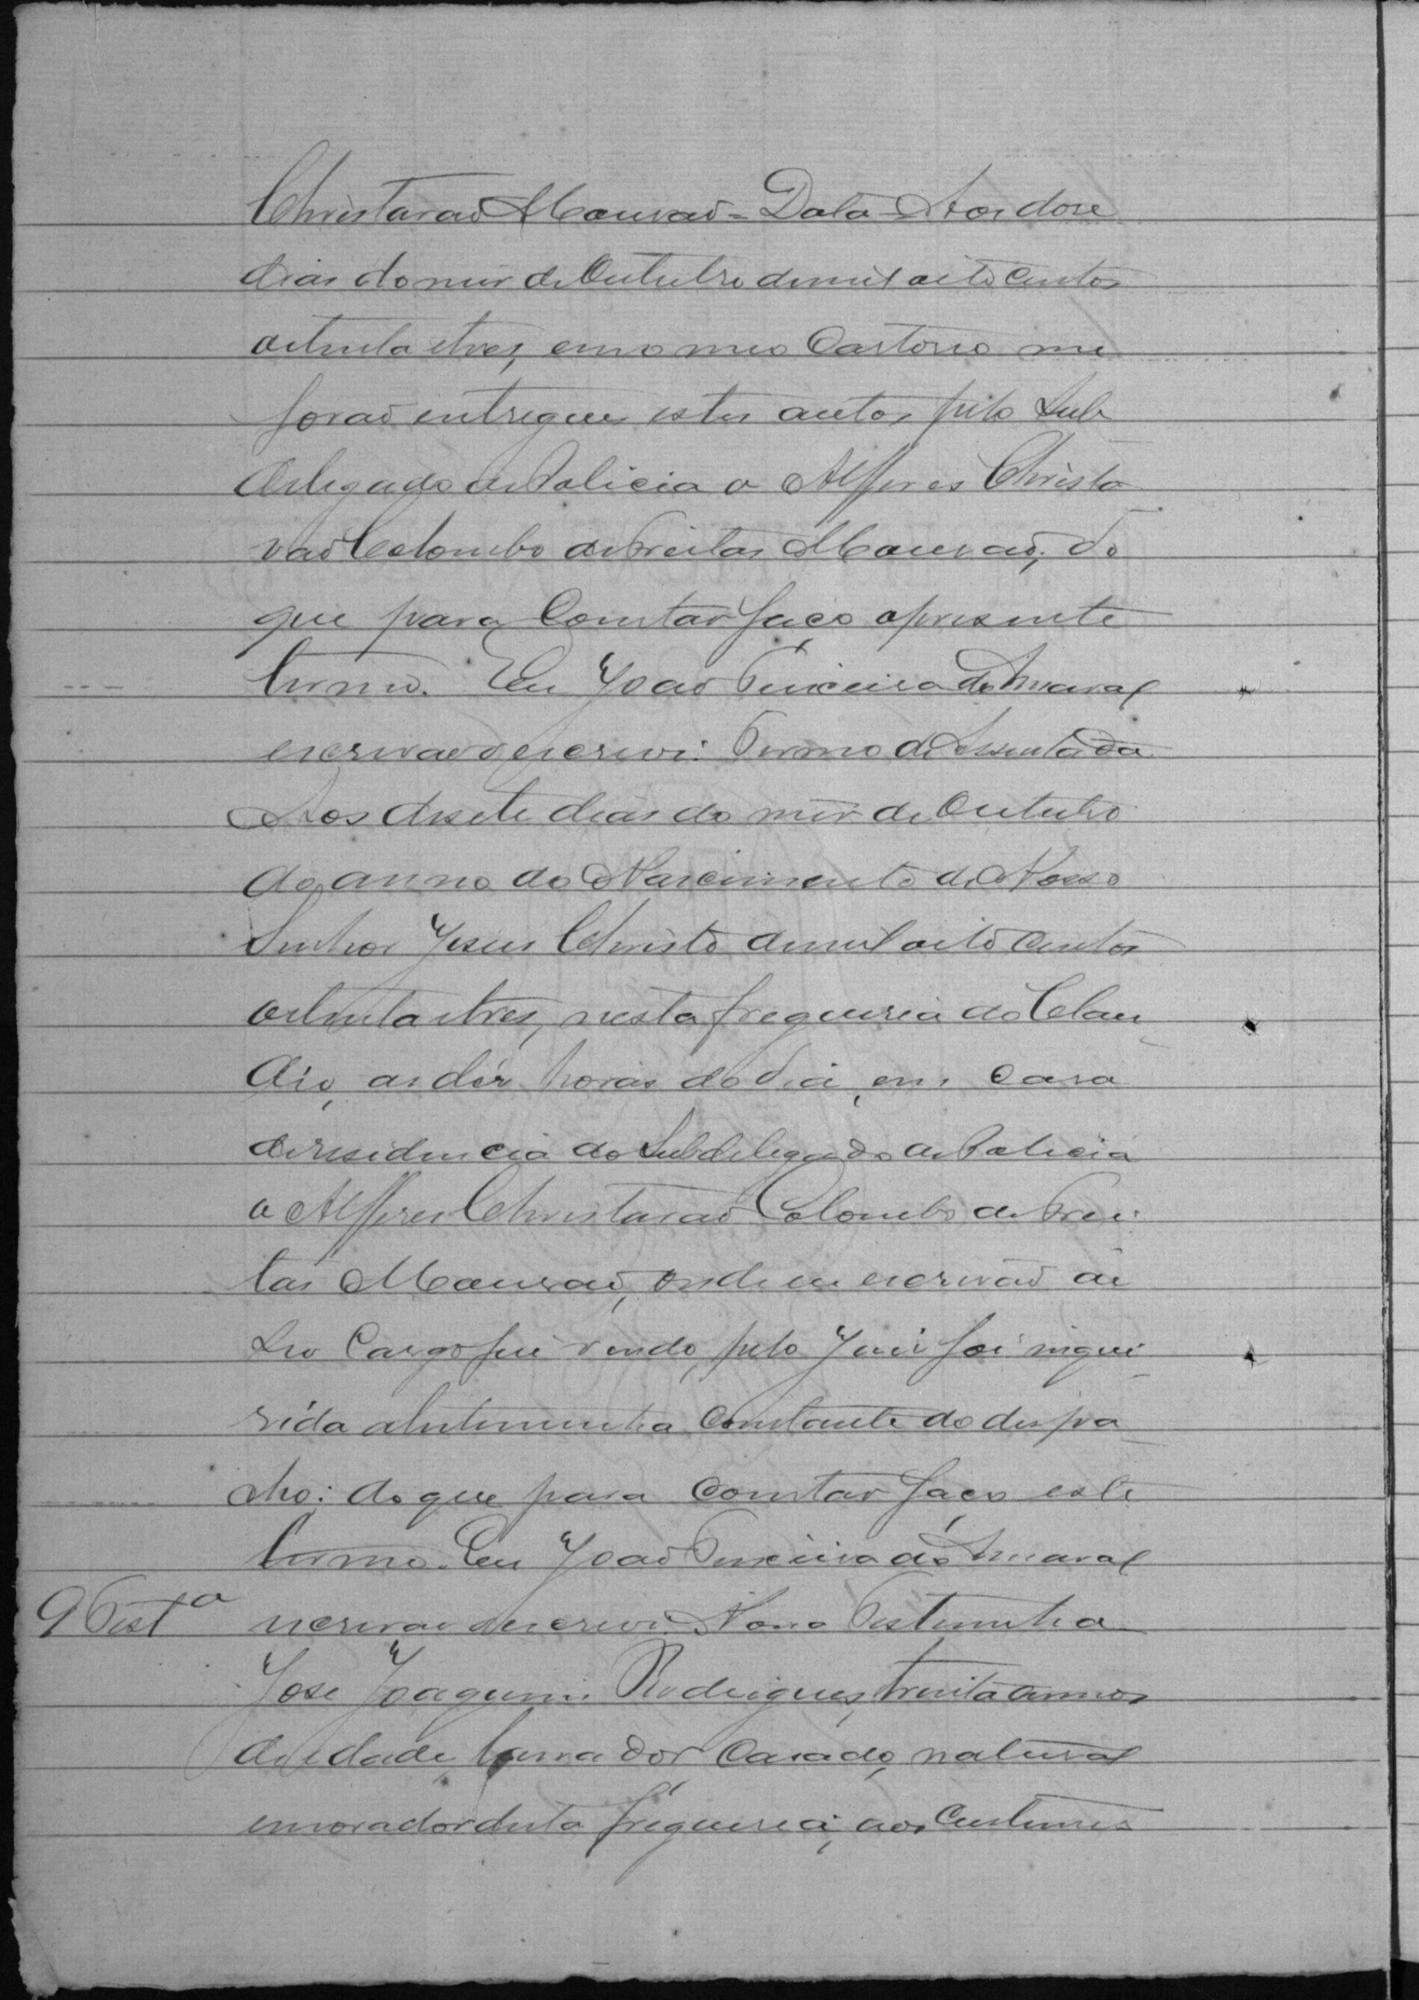 Christavaõ Mouraõ - Data - Aos dose
dias do mez de Outubro de mil oito centos
oitenta etres, em o meo Cartorio me
foraõ entregues estes autos pelo Sub
delegado de Policia o Alferes Christo
vaõ Colombo de Freitas Mouraõ; do
que para Constar faço o presente
termo. Eu Joaõ Teixeira do Amaral
escrivaõ o escrevi. Termo de Assentada
Aos desete dias do mez de Outubro
do anno do Nascimento de Nosso
Senhor Jesus Christo de mil oito centos
oitenta etres, nesta freguesia do Clau
dio, as déz horas do dia, em casa
de residencia do Subdelegado de Policia
o Alferes Christavaõ Colombo de Frei
tas Mouraõ, onde eu escrivaõ de
seo Cargo fui vindo, pelo Juiz foi inque
rida a testemunha Constante do despa
cho; do que para Constar faço este
termo. Eu Joaõ Teixeira do Amaral
9 Testª escrivaõ o escrevi. Nona Testemunha
José Joaquim Rodrigues, trinta annos
de idade, lavrador, casado, natural
e morador desta freguesia, aos Custumes